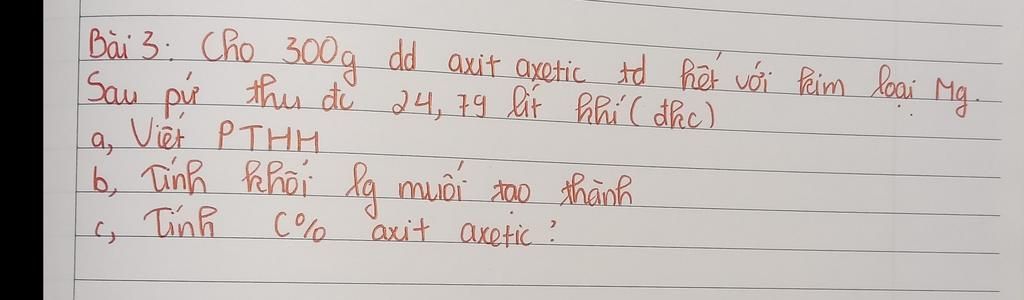 Bài 3: Cho 300g dd axit axetic td hết với kim loại Mg.
Sau pứ thu đc 24,79 lít khí (đkc)
a, Viết PTHH
b, Tính khối lg muối tạo thành
c, Tính C% axit axetic?